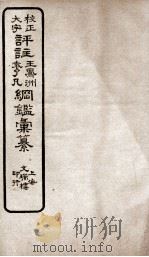 校正
大字評註王鳳洲袁了凡綱鑑彙纂
上海
文瑞樓
印行